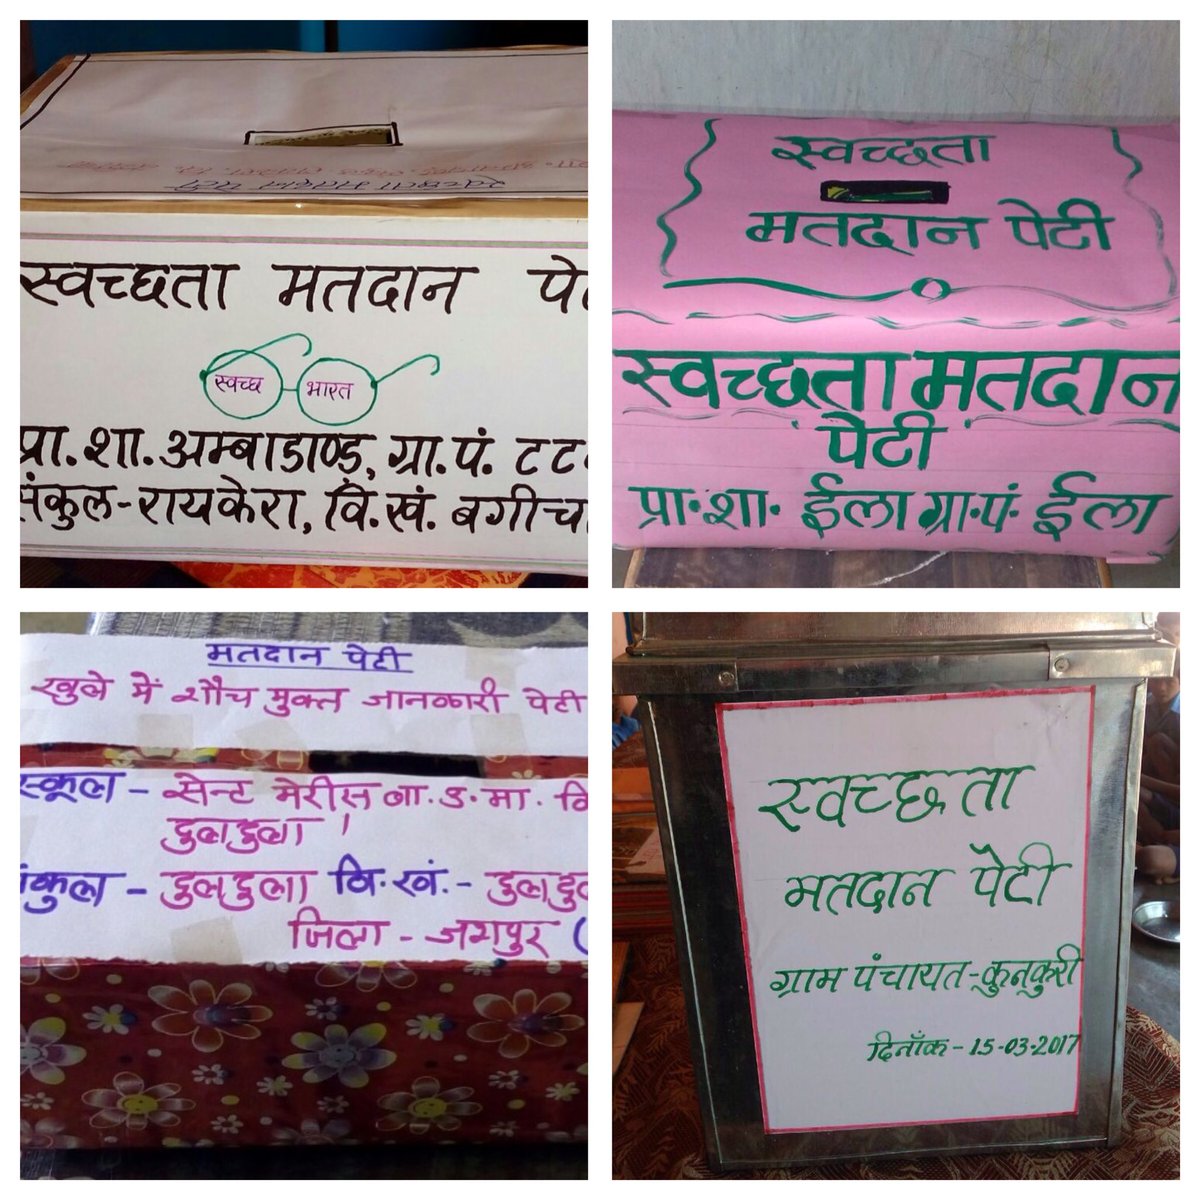 स्वच्छता मतदान
स्वच्छता मतदान
स्वच्छ भारत
प्रा.शा.अम्बाडाण्ड, ग्रा.पं.
संकुल-रायकेरा, वि.खं. बगीचा
स्वच्छता
मतदान पेटी
स्वच्छता मतदान
पेटी
प्रा.शा. ईला ग्रा.पं. ईला
मतदान पेटी
खुले में शौच मुक्त जानकारी पेटी
स्कूल - सेन्ट मेरीस बा.उ.मा. वि
दुलदुला।
संकुल - दुलदुला वि.खं.-
जिला - जशपुर (
स्वच्छता
मतदान पेटी
ग्राम पंचायत-कुनकुरी
दिनाँक-15-03-2017